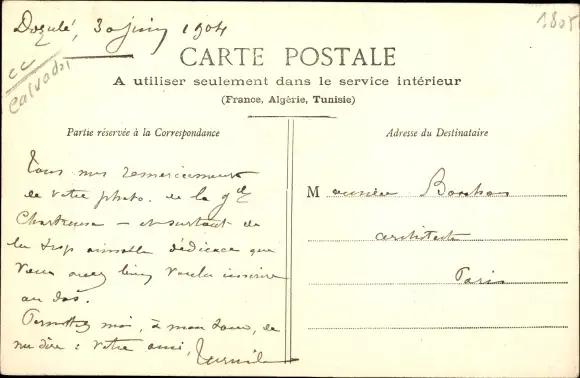 Dozulé, 30 juin 1904
Calvados
CARTE POSTALE
A utiliser seulement dans le service intérieur
(France, Algérie, Tunisie)
Partie réservée à la Correspondance
Adresse du Destinataire
Tous mes remerciements
de votre photo. de la gde
Chartreuse – et surtout de
la trop aimable dédicace que
vous avez bien voulu inscrire
au dos.
Permettez moi, à mon tour, de
me dire : votre ami,
Monsieur
architecte
Paris